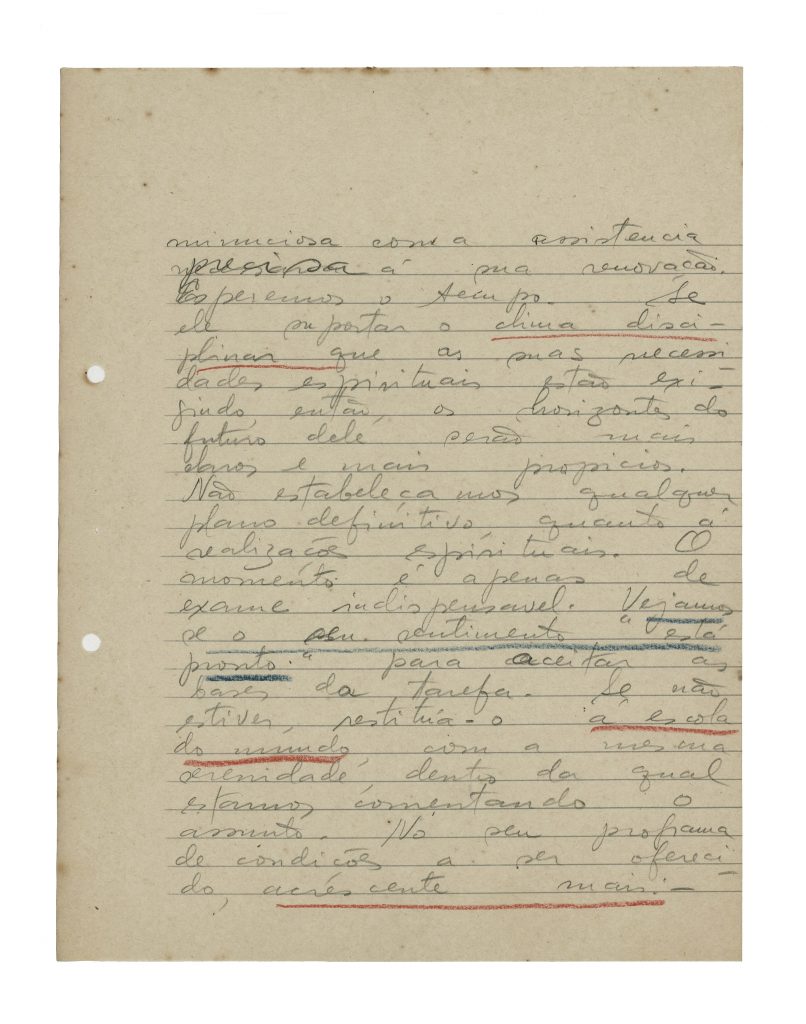 minuciosa com a assistencia
precisa á sua renovação.
Esperemos o tempo. Se
ele suportar o clima disci-
plinar que as suas necessi
dades espirituais estão exi-
gindo, então, os horizontes do
futuro dele serão mais
claros e mais propicios.
Não estabeleçamos qualquer
plano definitivo, quanto á
realizações espirituais. O
momento é apenas de
exame indispensavel. Vejamos
se o seu sentimento "está
pronto" para aceitar as
bases da tarefa. Se não
estiver, restitúa-o á escola
do mundo, com a mesma
serenidade, dentro da qual
estamos comentando o
assunto. No seu programa
de condições a ser ofereci-
do, acréscente mais:-